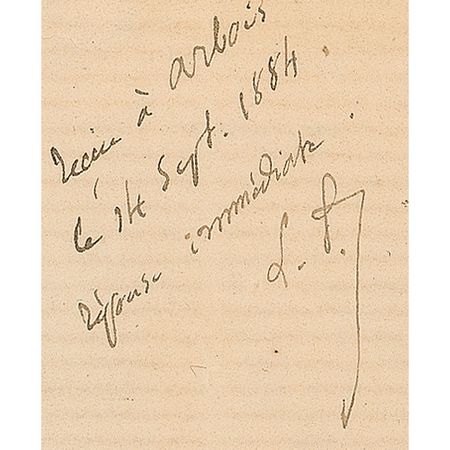 reçue à Arbois
le 14 Sept. 1884.
réponse immédiate.
L. P.